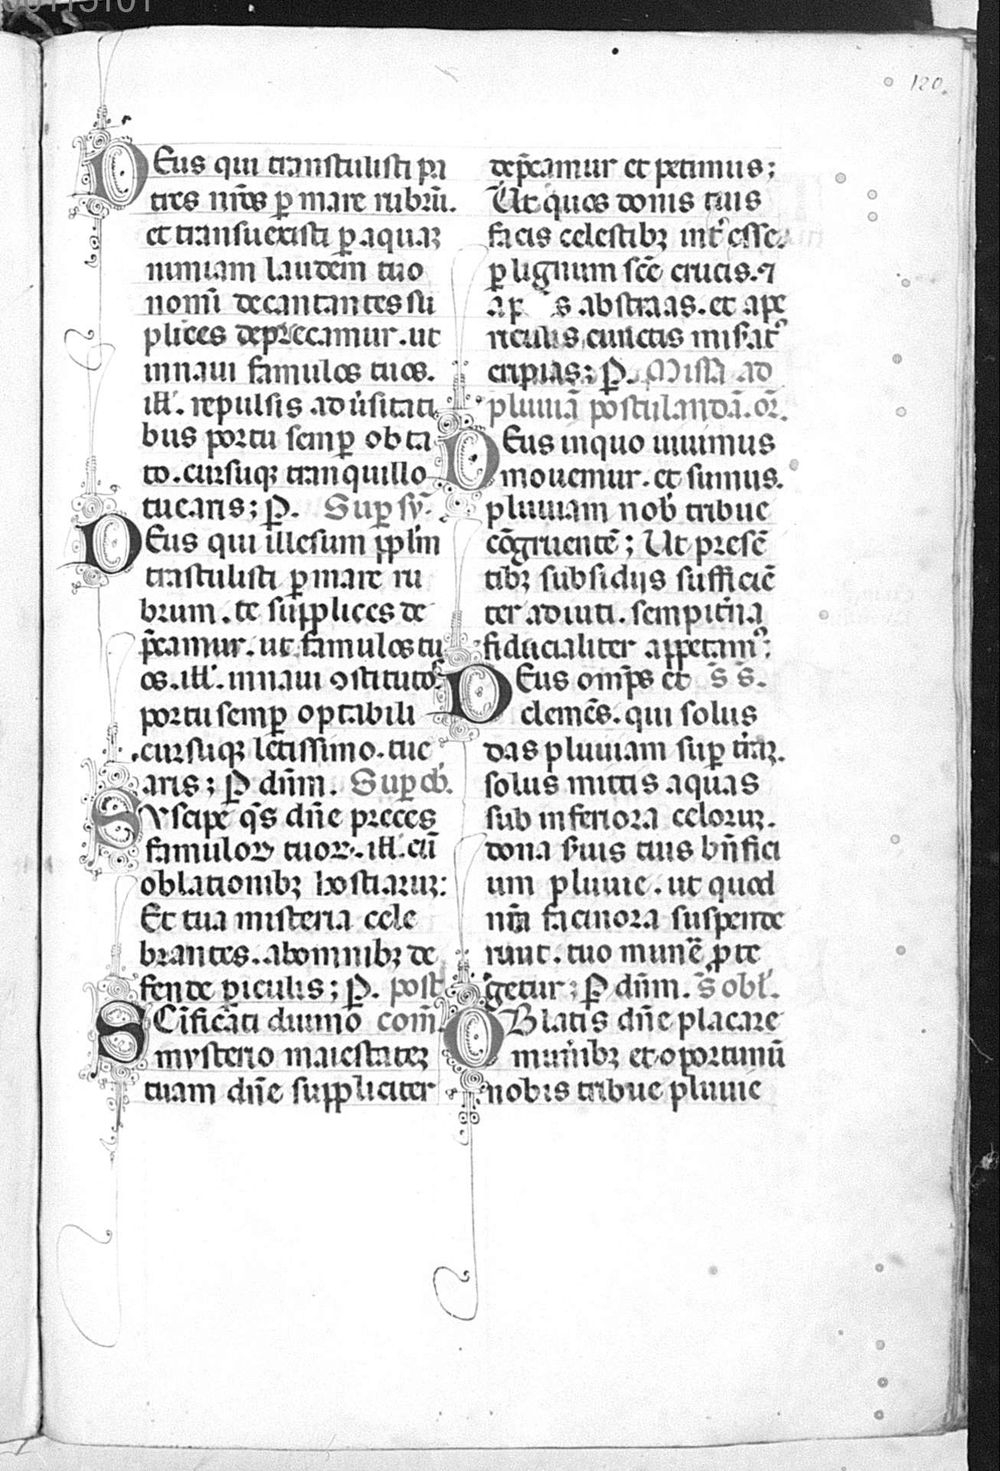 120.
DEus qui transtulisti pa
tres nr̄os p̱ mare rubrū.
et transuexisti p̱ aquaꝝ
nimiam laudem tuo
nomī decantantes su
plices deprecamur. ut
innaui famulos tuos.
ill̄. repulsis aduersitati
bus portu semp̱ obta
to. cursuqꝫ tranquillo
tuearis; P. Sup̱ sȳ.
DEus qui illesum pp̱lm̄
trāstulisti p̱ mare ru
brum. te supplices de
p̄camur. ut famulos tu
os. ill̄. innaui ꝯstitutos
portu semp̱ optabili
cursuqꝫ letissimo. tue
aris; P dn̄m. Sup̱ ob̄.
SVscipe q̄s dn̄e preces
famuloꝝ tuoꝝ. ill̄. cū
oblationibꝫ hostiaruꝫ:
Et tua misteria cele
brantes. abomnibꝫ de
fende p̱iculis; P. post
SCīficati diuino com̄
mysterio maiestateꝫ
tuam dn̄e suppliciter
dep̄camur et petimus;
Ut quos donis tuis
facis celestibꝫ int̓esse.
p̱ lignum sc̄e crucis. ⁊
abstraas. et a pe
riculis cunctis mis̓at᷒
eripias; P. Missa ad
pluuiā postulandā. or̄.
DEus inquo uiuimus
mouemur. et sumus.
pluuiam nob̓ tribue
cōgruentē; Ut presē
tibꝫ subsidijs sufficiē
ter adiuti. sempit̄na
fiducialiter appetam᷒;
DEus omp̄s et s̄ s̄.
clemēs. qui solus
das pluuiam sup̱ t̄raꝫ.
solus mittis aquas
sub inferiora celoruꝫ.
dona s̓uis tuis bn̄fici
um pluuie. ut quod
nr̄a facinora suspende
runt. tuo munē̄ ꝓte
getur; P dn̄m. S̄ obl̓.
OBlatis dn̄e placare
mun̄ibꝫ et oportunū
nobis tribue pluuie